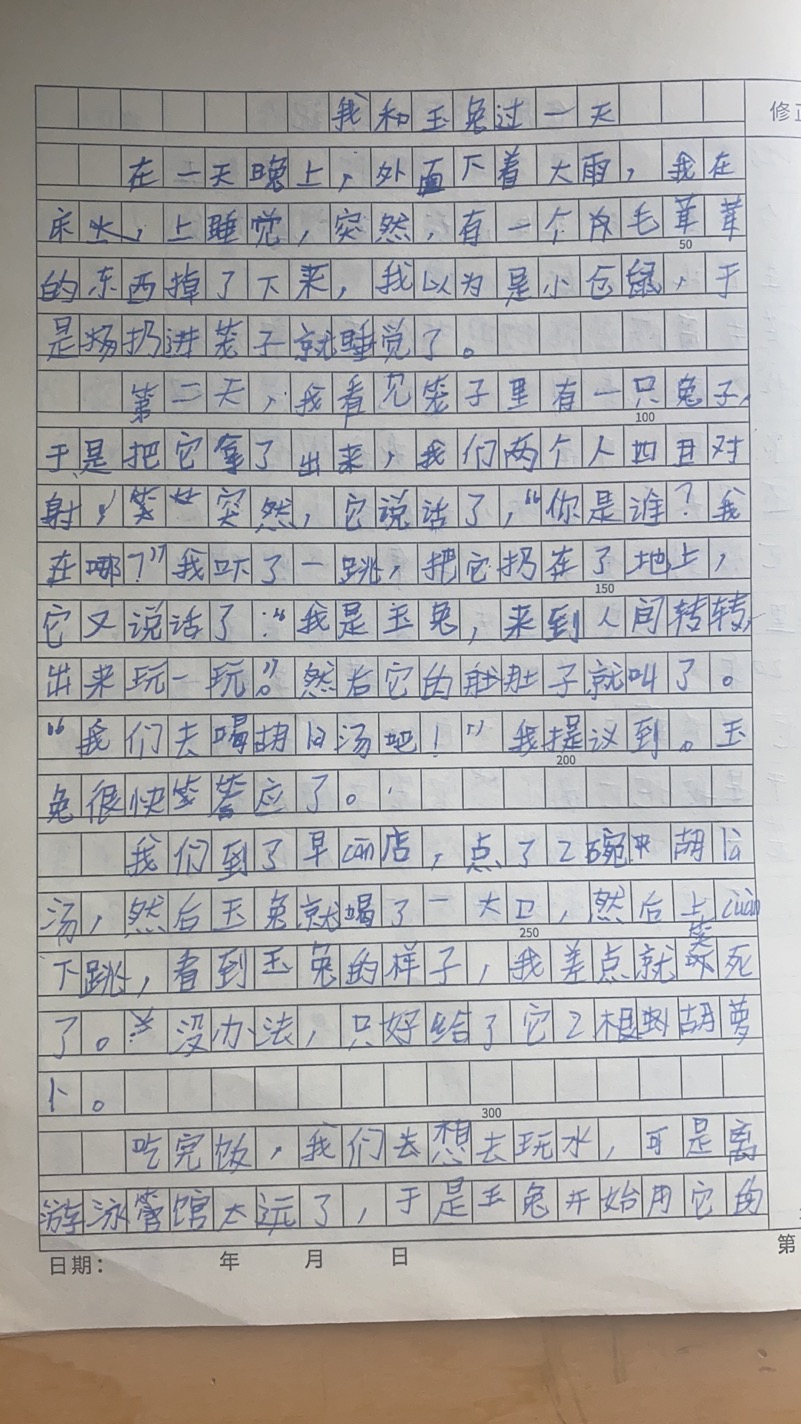 我和玉兔过一天
修正
在一天晚上，外面下着大雨，我在
床上睡觉，突然，有一个毛茸茸
50
的东西掉了下来，我以为是小仓鼠，于
是扔进笼子就睡觉了。
第二天，我看见笼子里有一只兔子，
100
于是把它拿了出来，我们两个人四目对
射，突然，它说话了，“你是谁？我
在哪？”我吓了一跳，把它扔在了地上，
150
它又说话了：“我是玉兔，来到人间转转，
出来玩一玩。”然后它的肚子就叫了。
“我们去喝胡là汤吧！”我提议到。玉
200
兔很快答应了。
我们到了早cān店，点了2碗胡là
汤，然后玉兔就喝了一大口，然后上cuàn
250
下跳，看到玉兔的样子，我差点就笑死
了。没办法，只好给了它2根胡萝
卜。
300
吃完饭，我们想去玩水，可是离
游泳馆太远了，于是玉兔开始用它的
日期： 年 月 日
第